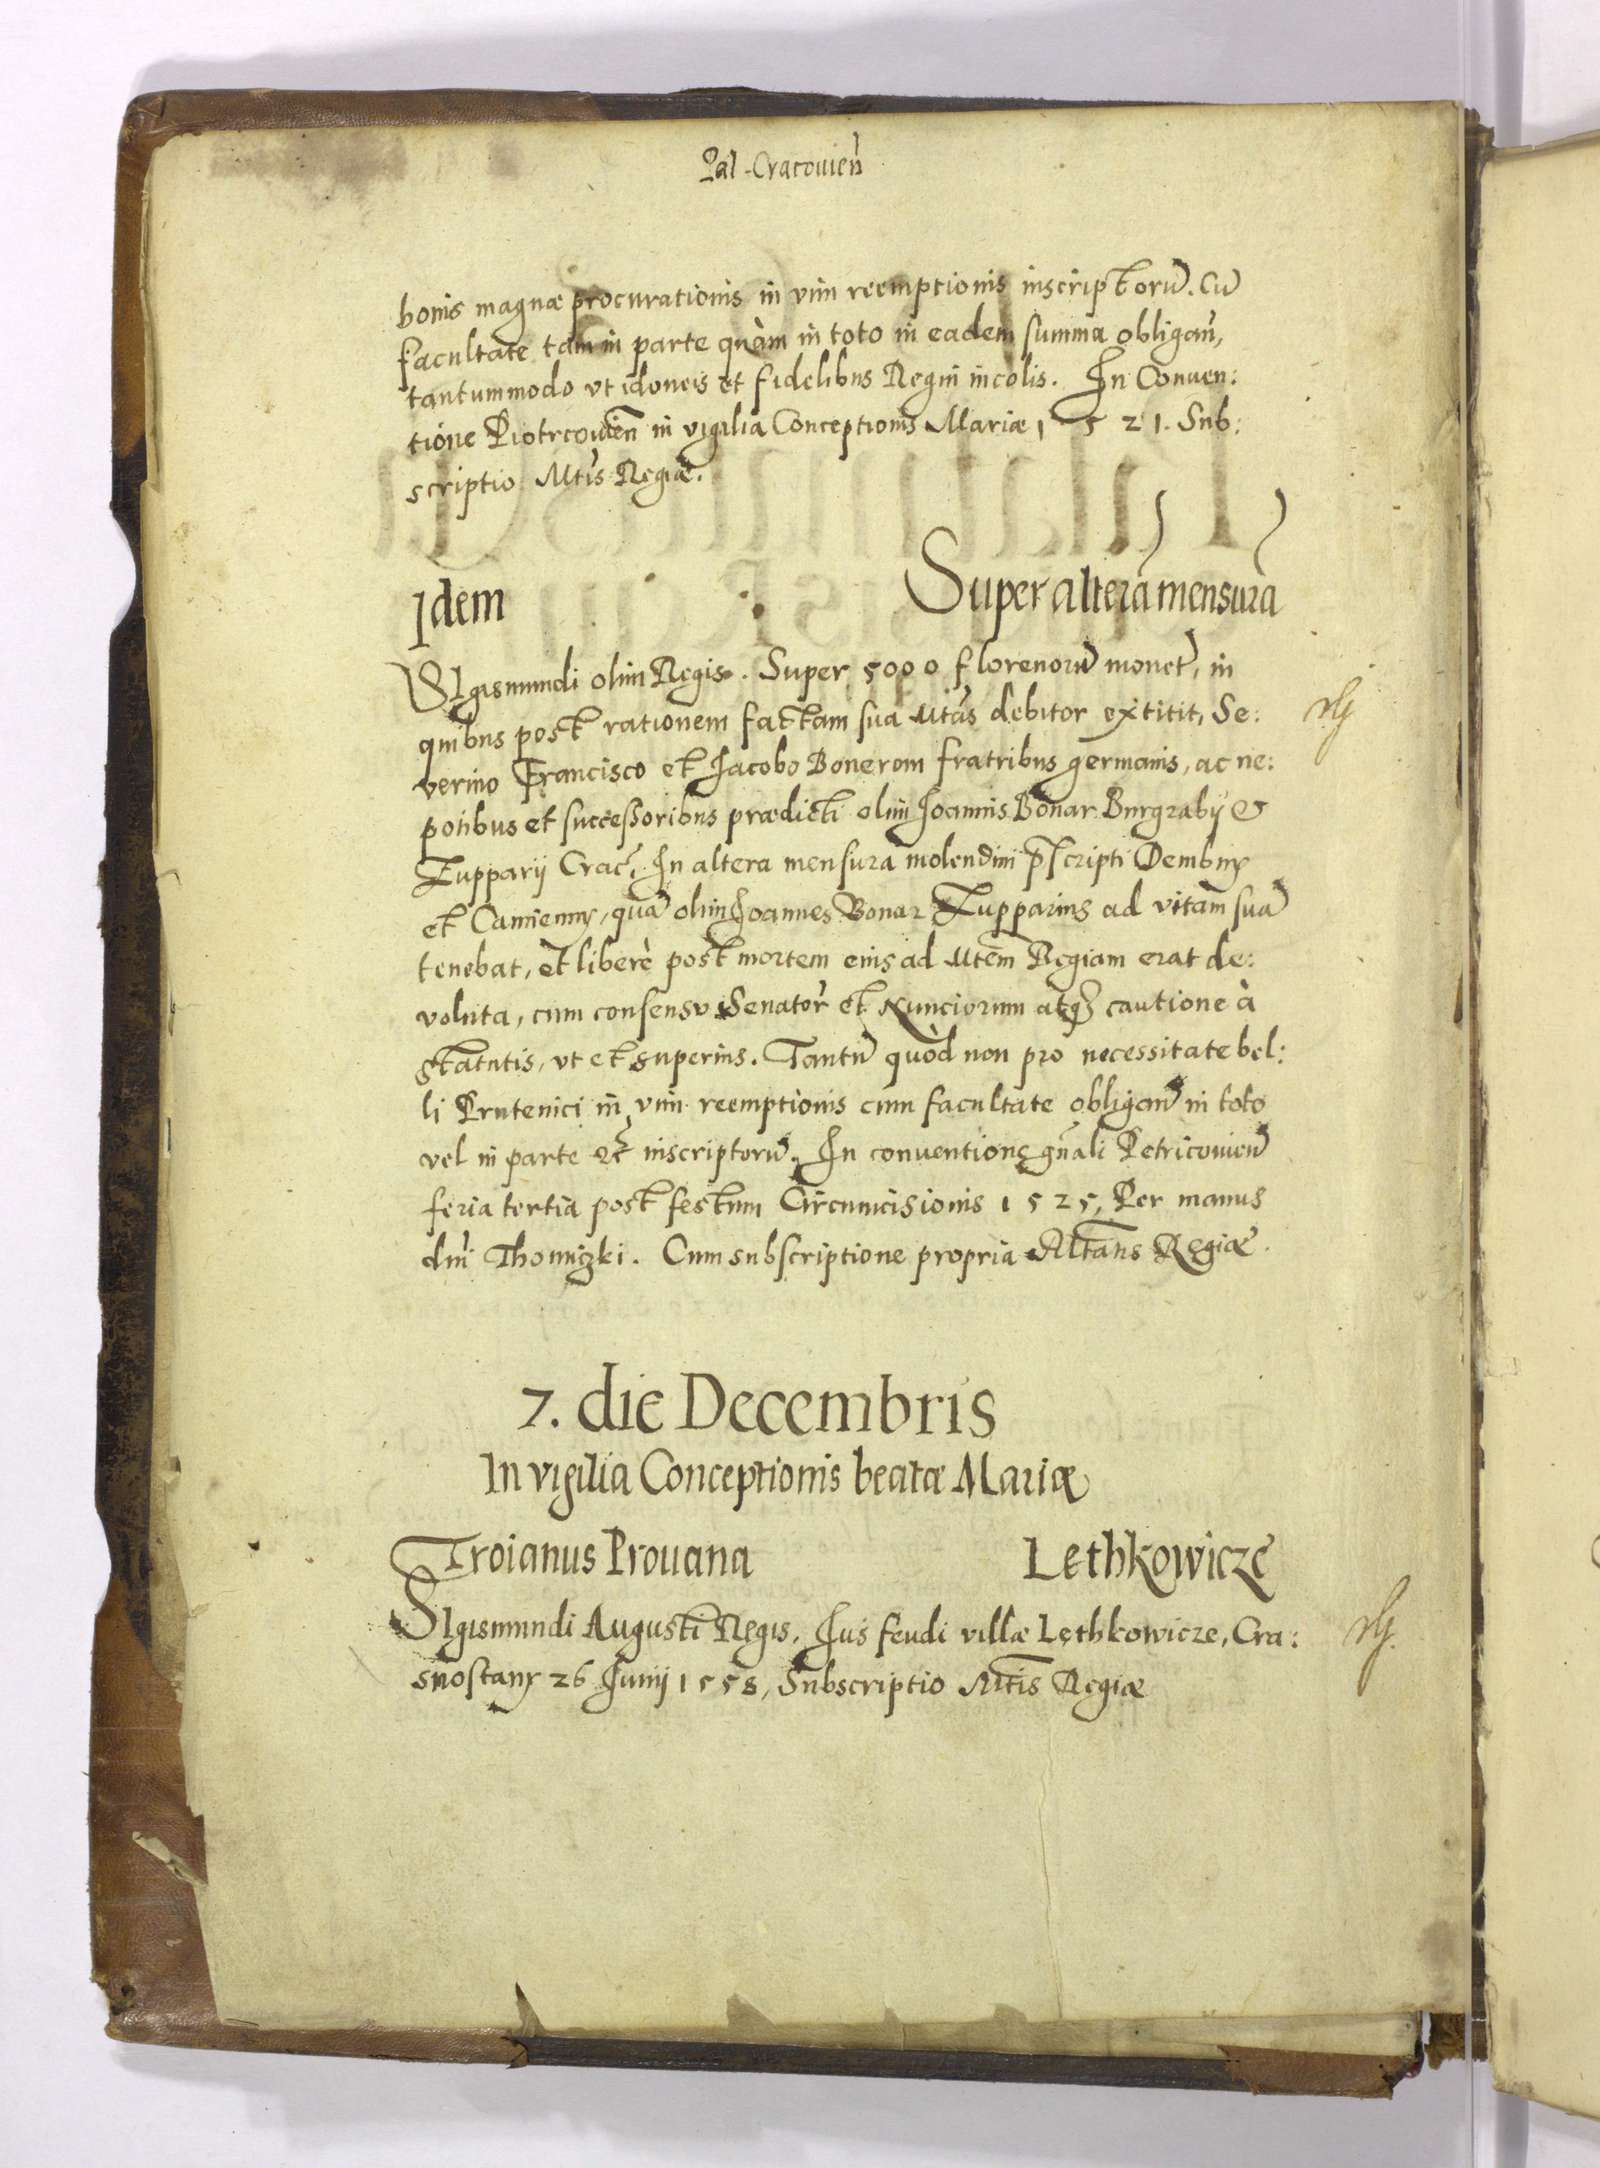 Pal-Cracouien̄
bonis magnæ procurationis in vim reemptionis inscriptorū. Cū
facultate tam in parte quàm in toto in eadem summa obligan̄,
tantummodo vt idoneis et fidelibus Regni incolis. In Conuen:
tione Piotrcouien̄ in vigilia Conceptionis Mariæ 1521. Sub:
scriptio Mtis Regiæ.
Idem Super alterā mensurā
SIgismundi olim Regis. Super 5000 florenorū monet̄, in
quibus post rationem factam sua Mtās debitor extitit, Se:
verino Francisco et Jacobo Bonerom fratribus germanis, ac ne:
potibus et successoribus prædicti olim Joannis Bonar Burgrabij &
Zupparij Crac̄, In altera mensura molendini p̄scripti Dembny
et Camienny, quā olim Joannes Bonar Zupparius ad vitam suā
tenebat, et liberè post mortem eius ad Mtēm Regiam erat de:
voluta, cum consensu Senator̄ et Nunciorum atq₃ cautione à
statutis, vt et superius. Tantū quòd non pro necessitate bel:
li Prutenici in vim reemptionis cum facultate obligan̄ in toto
vel in parte &c inscriptorū. In conuentione gn̄ali Petricouien̄
feria tertia post festum Circumcisionis 1525, Per manus
dn̄i Thomizki. Cum subscriptione propria Mtātis Regiæ.
7. die Decembris
In vigilia Conceptionis beatæ Mariæ
Troianus Prouana Lethkowicze
SIgismundi Augusti Regis, Jus feudi villæ Lethkowicze, Cra:
snostany 26 Junij 1558, Subscriptio Mtis Regiæ